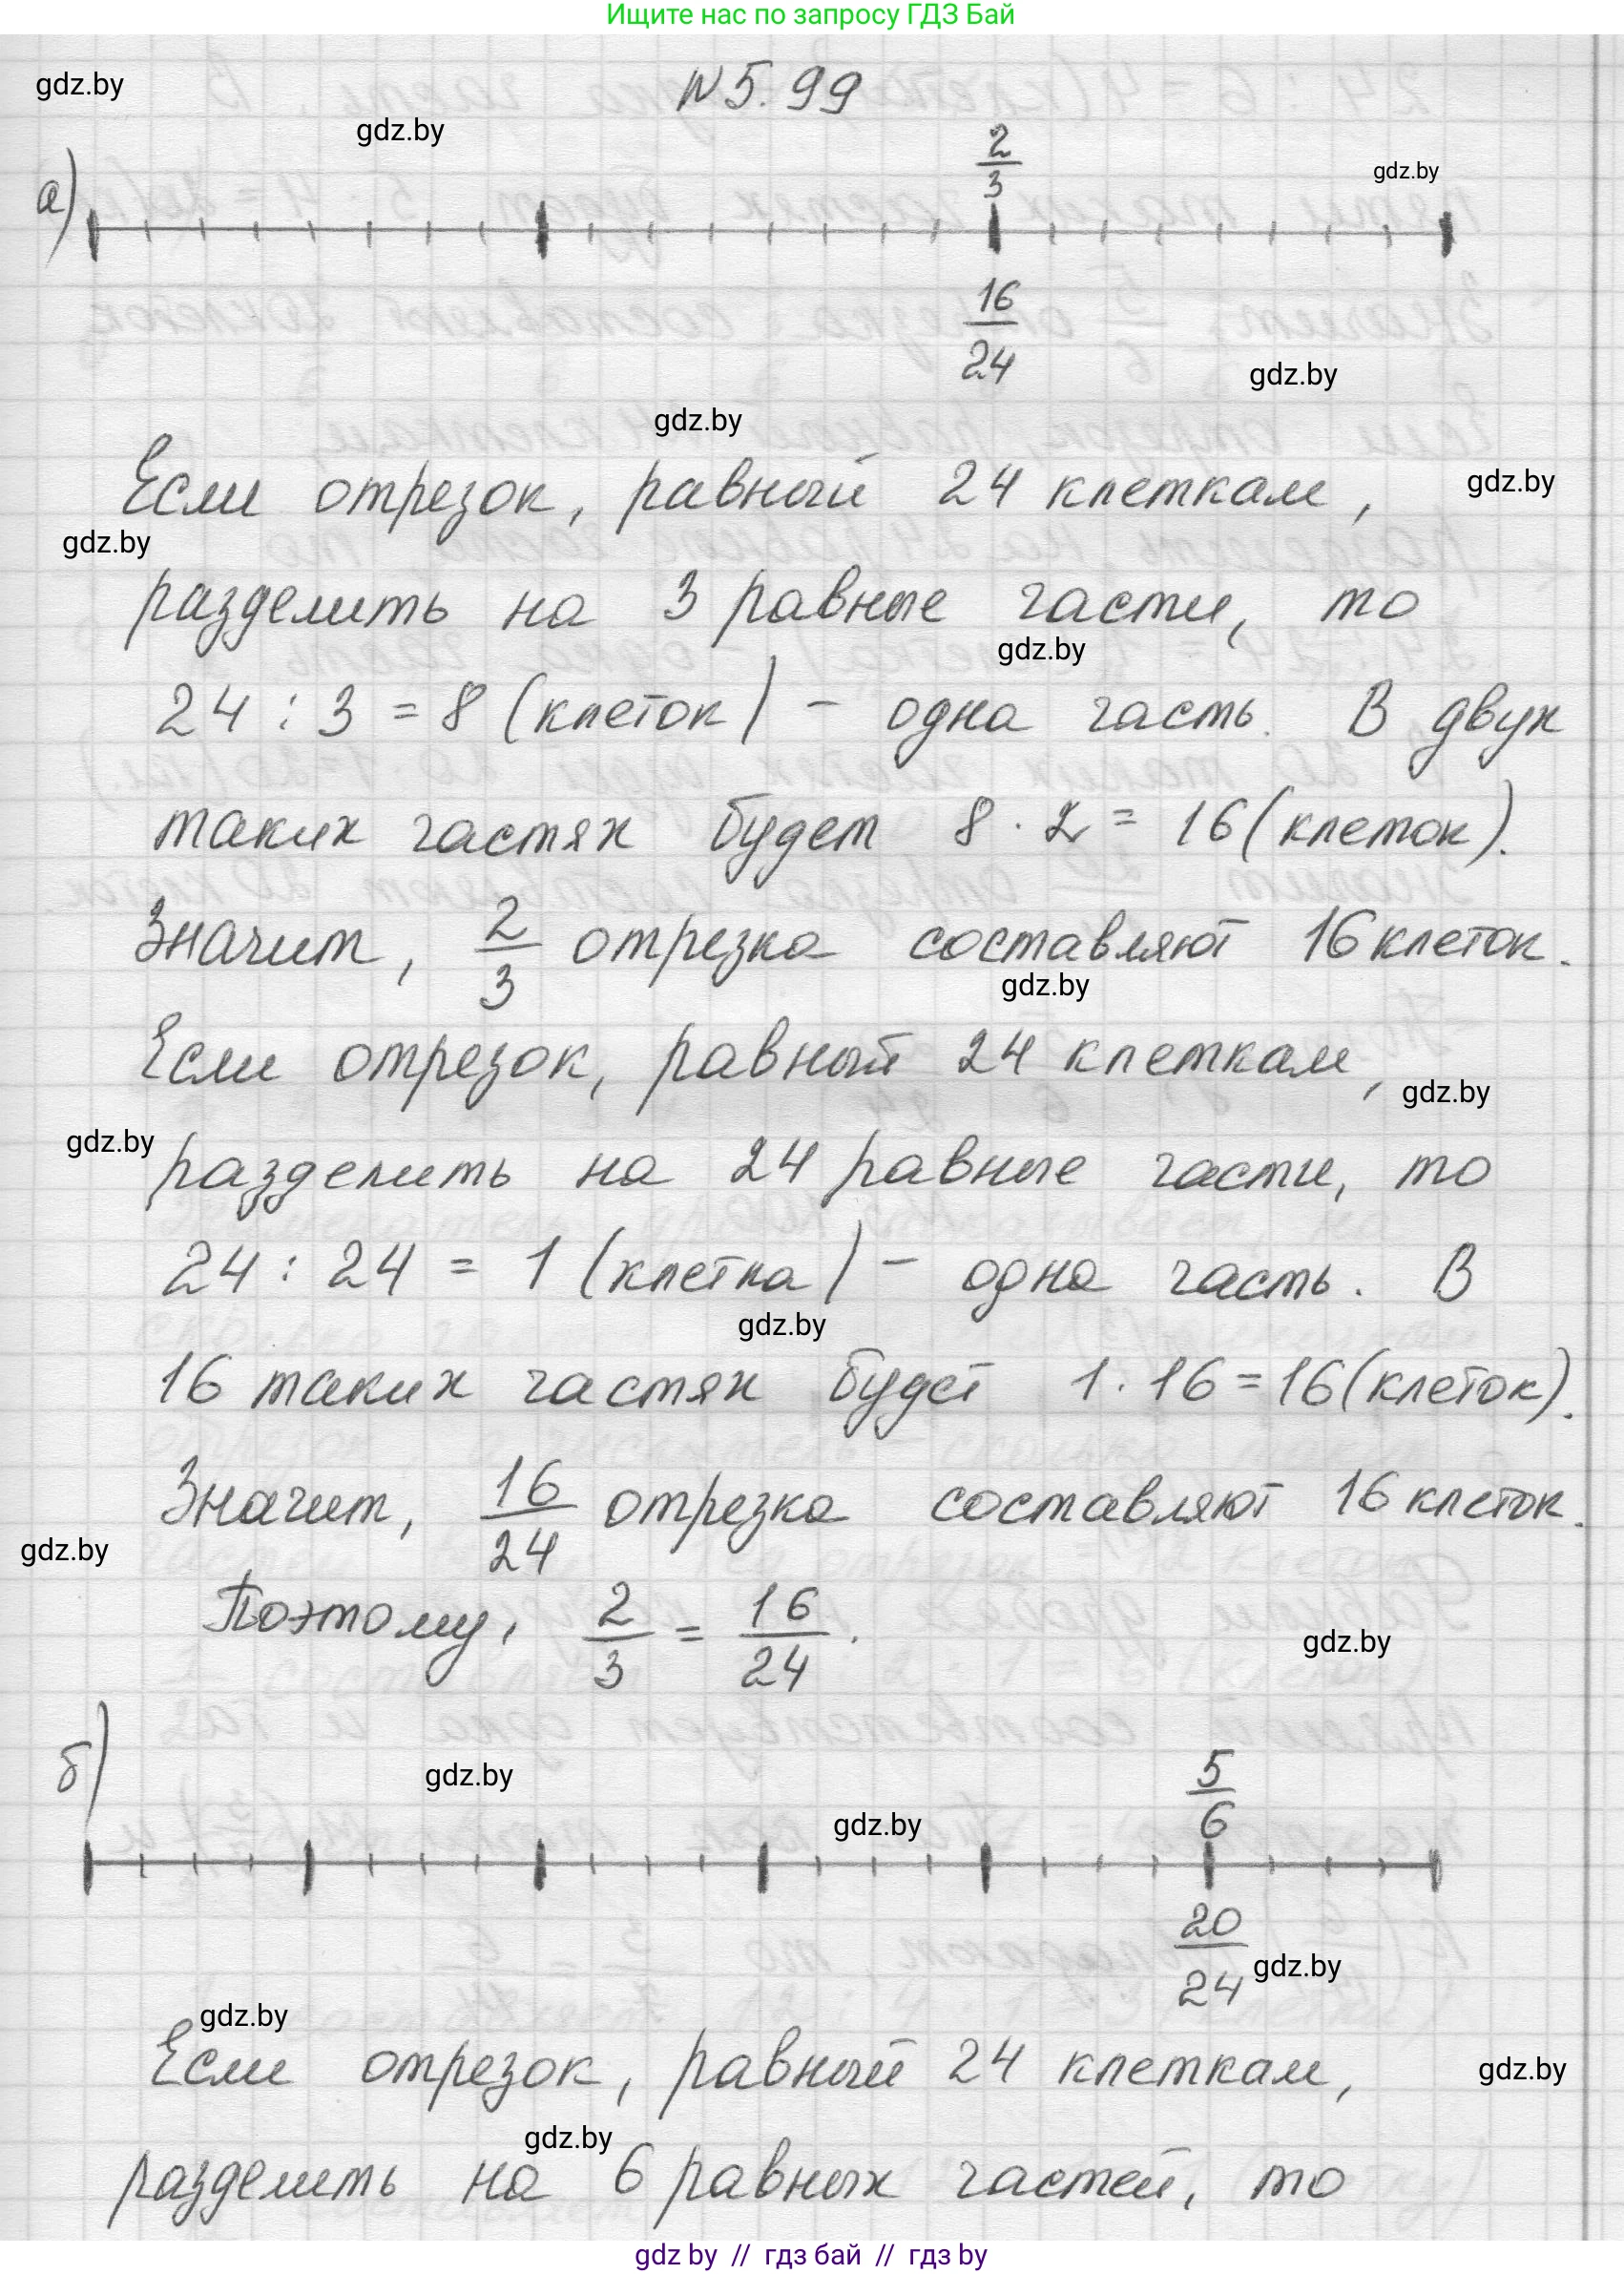 Ищите нас по запросу ГДЗ Бай
gdz.by
N 5. 99
gdz.by
а)
2/3
gdz.by
16/24
gdz.by
gdz.by
Если отрезок, равный 24 клеткам,
gdz.by
gdz.by
разделить на 3 равные части, то
gdz.by
24 : 3 = 8 (клеток) - одна часть. В двух
таких частях будет 8 · 2 = 16 (клеток).
Значит, 2/3 отрезка составляют 16 клеток.
gdz.by
Если отрезок, равный 24 клеткам,
gdz.by
gdz.by
разделить на 24 равные части, то
24 : 24 = 1 (клетка) - одна часть. В
gdz.by
16 таких частях будет 1 · 16 = 16 (клеток).
Значит, 16/24 отрезка составляют 16 клеток.
gdz.by
Поэтому, 2/3 = 16/24.
gdz.by
б)
gdz.by
5/6
gdz.by
20/24
gdz.by
gdz.by
Если отрезок, равный 24 клеткам,
gdz.by
gdz.by
разделить на 6 равных частей, то
gdz by // гдз бай // гдз by